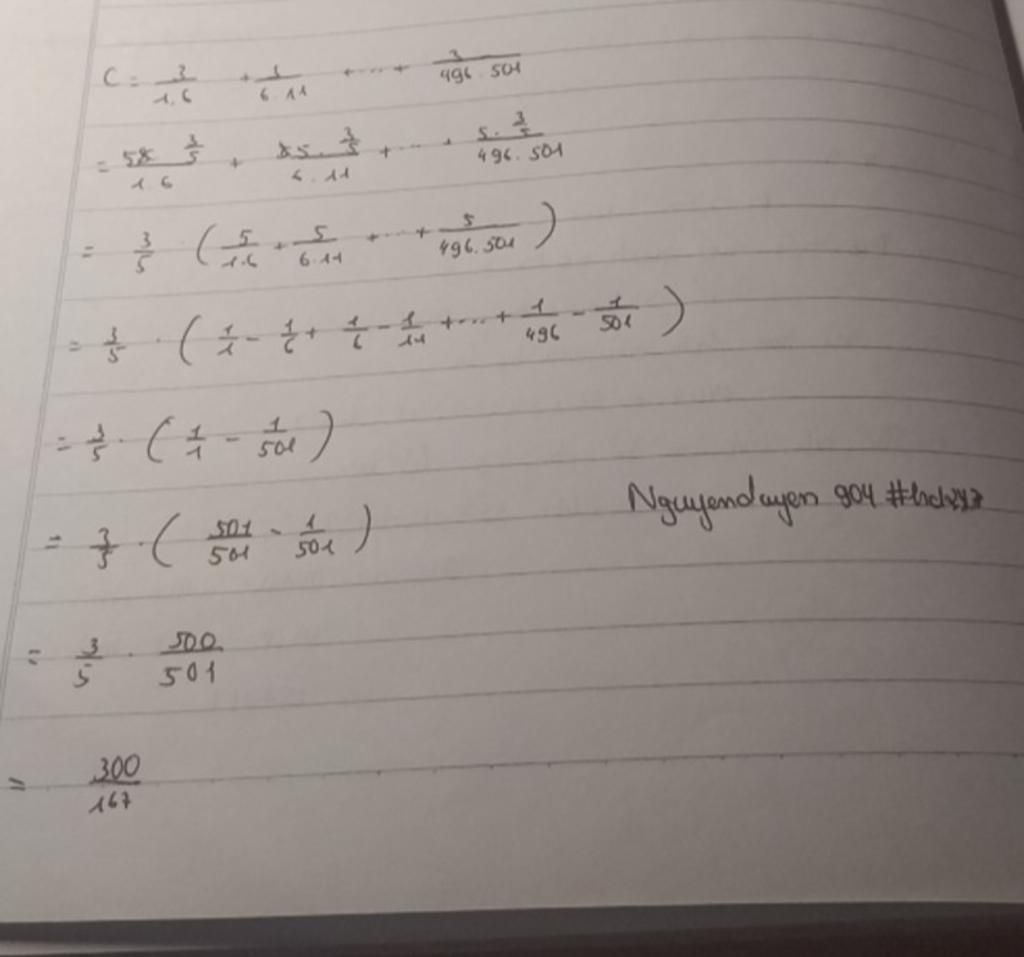 C = 3/1.6 + 3/6.11 + ... + 3/496.501
= 5. 3/5 / 1.6 + 5. 3/5 / 6.11 + ... + 5. 3/5 / 496.501
= 3/5 . ( 5/1.6 + 5/6.11 + ... + 5/496.501 )
= 3/5 . ( 1/1 - 1/6 + 1/6 - 1/11 + ... + 1/496 - 1/501 )
= 3/5 . ( 1/1 - 1/501 )
= 3/5 . ( 501/501 - 1/501 )
Nguyenduyen 904
= 3/5 . 500/501
= 300/167